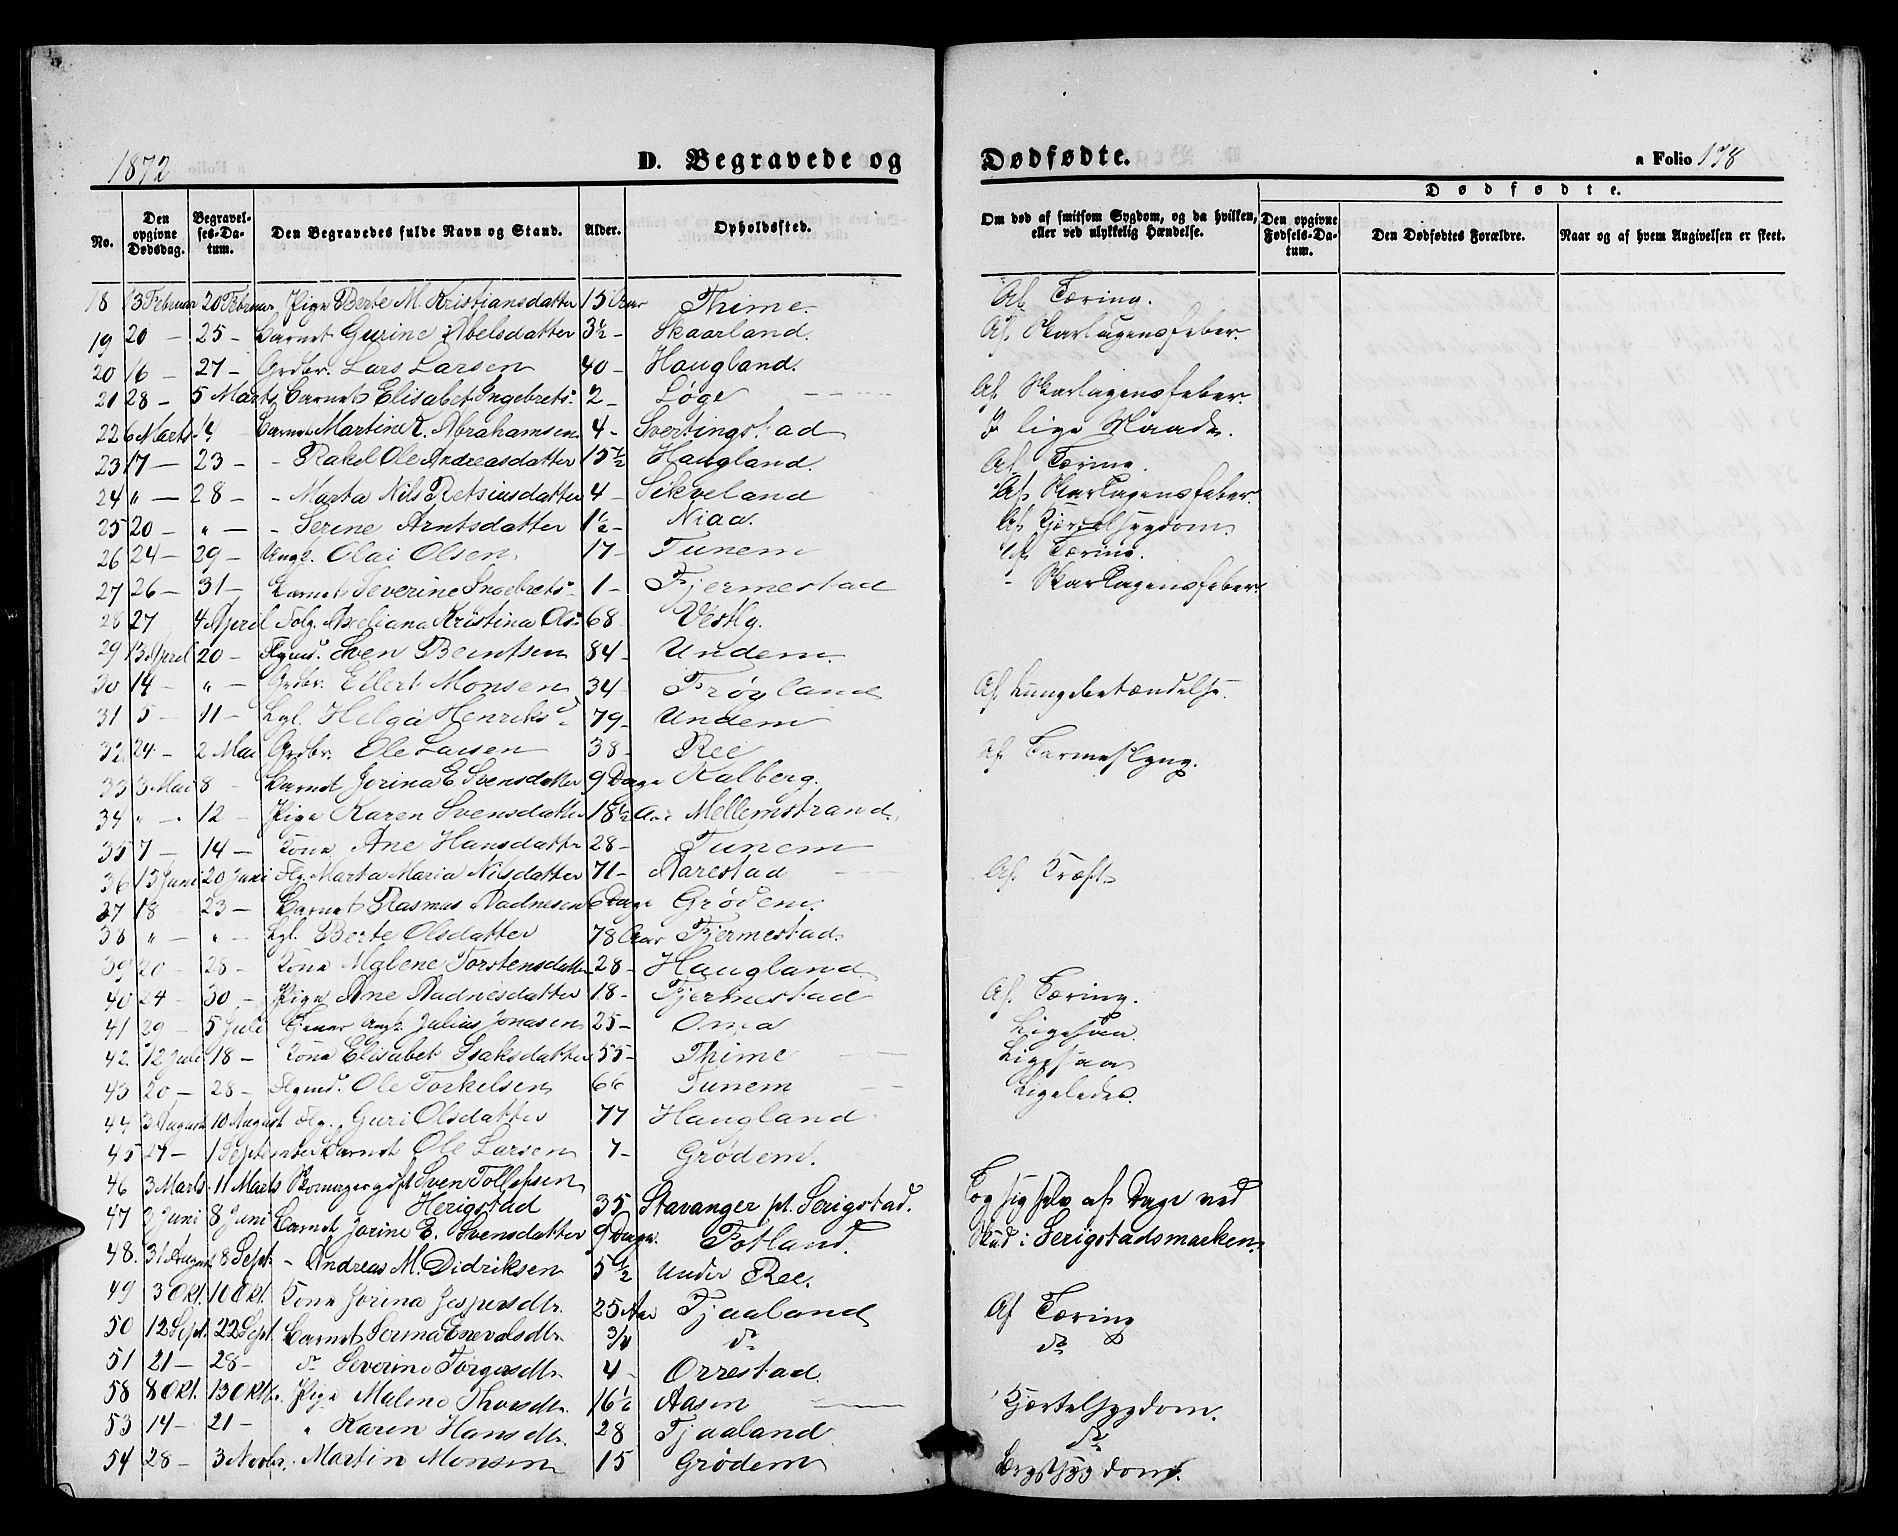 1872 D. Begravede og Dødfødte. a Folio 178
Dødfødte.
No. Den opgivne Dødsdag. Begravelses-Datum. Den Begravedes fulde Navn og Stand. Alder. Opholdssted. Om død af smitsom Sygdom, og da hvilken, eller ved ulykkelig Hændelse. Den opgivne Fødsels-Datum. Den Dødfødtes Forældre. Naar og af hvem Angivelsen er skeet.
18 13 Februar 20 Februar Pige Berte M. Kristiansdatter 15 Aar Thime. Af Tæring.
19 20 — 25 — Barnet Gurine Abelsdatter 3½ - Skaarland. Af Skarlagensfeber.
20 16 — 27 — Grdbr. Lars Larsen 40 - Haugland.
21 28 — 5 Marts Barnet Elisabet Ingebrets. 2 - Løge Af Skarlagensfeber.
22 6 Marts Barnet Martine K. Abrahamsen 4 - Svertingstad I lige Maade.
23 17 — 23 — - Rakel Ole Andreasdatter 15½ Haugland. Af Tæring.
24 " — 28 — - Marta Nils Retsiusdatter 4 - Sikveland Af Skarlagensfeber.
25 20 — " — - Serine Arntsdatter 1½ - Niaa. Af Kjertelsygdom.
26 24 — 29 — Ungk. Olai Olsen 17 - Tunem Af Tæring.
27 26 — 31 — Barnet Severine Ingebrets. 1 - Fjermestad - Skarlagensfeber.
28 27 4 April Folg. Axeliana Kristina Ols. 68 Vestly.
29 13 April 20 — Flgmd. Sven Berntsen 84 - Undem.
30 14 — " — Grdbr. Eilert Monsen 34 - Frøyland Af Lungebetændelse.
31 5 — 11 — Lgl. Helga Henriksd. 79 - Undem
32 24 — 2 Mai Grdbr. Ole Larsen 38 - Ree
33 3 Mai 8 — Barnet Jorina E. Svensdatter 9 Dage Kalberg.
34 " — 12 — Pige Karen Svensdatter 18½ Aar Mellemstrand.
35 7 — 14 — Kone Ane Hansdatter 28 - Tunem
36 13 Juni 20 Juni Flg. Marta Maria Nilsdatter 71 - Aarestad Af Kræft
37 18 23 — Barnet Rasmus Aadnesen 6 Dage Grødem.
38 " — " — Lgl. Berte Olsdatter 78 Aar Fjermestad.
39 20 — 28 — Kone Malene Torstensdatter 28 - Haugland
40 24 — 30 — Pige Ane Aadnesdatter 18 - Fjermestad Af Tæring.
41 29 — 5 Juli Julius Jonasen 25 - Oma Ligesaa.
42. 12 Juli 18 — Kone Elisabet Isaksdatter 55 - Thime Ligesaa
43 20 — 28 — Flgmd. Ole Torkelsen 66 Tunem Ligeledes.
44 3 August 10 August Flg. Guri Olsdatter 77 Haugland
45 27 — 1 September Barnet Ole Larsen 7 - Grødem.
46 3 Marts 11 Marts Skomager Sven Tollefsen
Herigstad 35 Stavanger pt. Serigstad. Tog sig selv af Dage ved
47 3 Juni 8 Juni Barnet Jorine E. Svensdatter 9 Dage. Fotland. Skud i Serigstadsmarken.
48. 31 August 8 Sept. - Andreas M. Didriksen 5½ Under Ree.
49 3 Okt. 10 Okt. Kone Jorina Jespersdtr. 25 Aar Fjaaland Af Tæring
50 12 Sept. 22 Sept. Barnet Serina Enevolsdtr. 3/4 do do
51 21 — 28 - do Severine Torgersdtr. 4 - Orrestad.
58 8 Okt. 13 Oktbr. Pige Malene 16½ Aasen Kjertelsygdom.
53 14 — 21 — " Karen Hansdtr. 28 Fjaaland. do
54 28 — 3 Novbr. Martin Monsen 15 Grødem